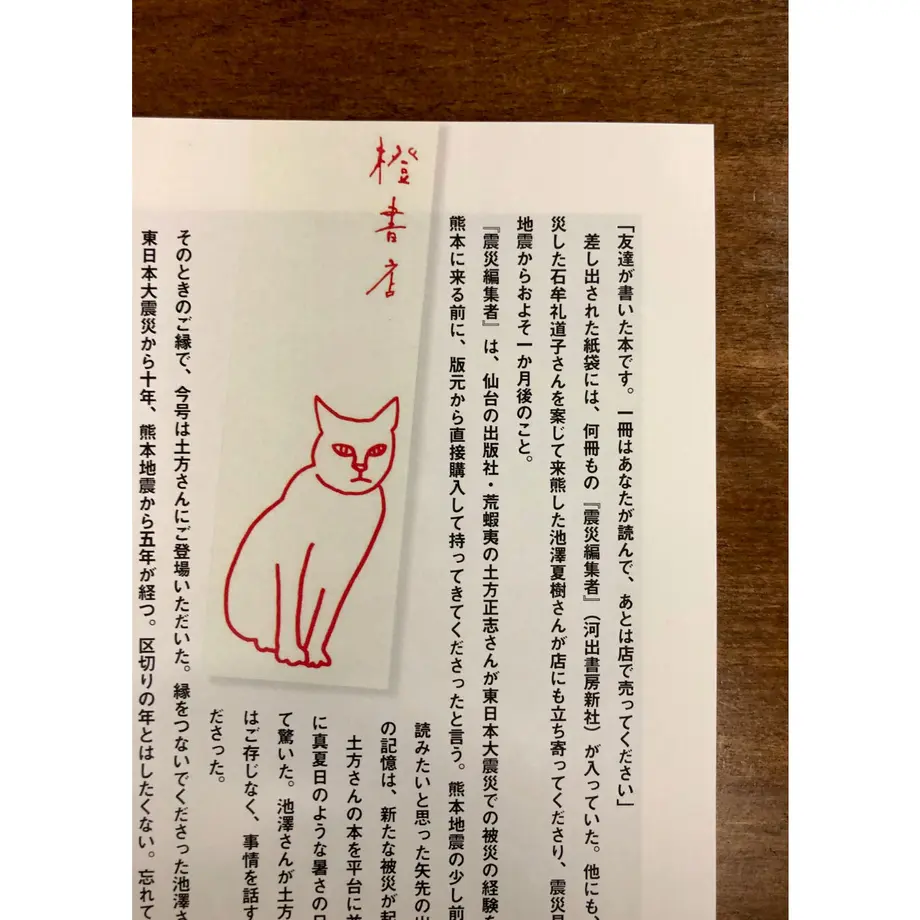 「友達が書いた本です。一冊はあなたが読んで、あとは店で売ってください」
差し出された紙袋には、何冊もの『震災編集者』（河出書房新社）が入っていた。他にも、
災した石牟礼道子さんを案じて来熊した池澤夏樹さんが店にも立ち寄ってくださり、震災見
地震からおよそ一か月後のこと。
『震災編集者』は、仙台の出版社・荒蝦夷の土方正志さんが東日本大震災での被災の経験を
熊本に来る前に、版元から直接購入して持ってきてくださったと言う。熊本地震の少し前
読みたいと思った矢先の出
の記憶は、新たな被災が起
土方さんの本を平台に並
に真夏日のような暑さの日
て驚いた。池澤さんが土方
はご存じなく、事情を話す
ださった。
そのときのご縁で、今号は土方さんにご登場いただいた。縁をつないでくださった池澤さ
東日本大震災から十年、熊本地震から五年が経つ。区切りの年とはしたくない。忘れて
橙書店